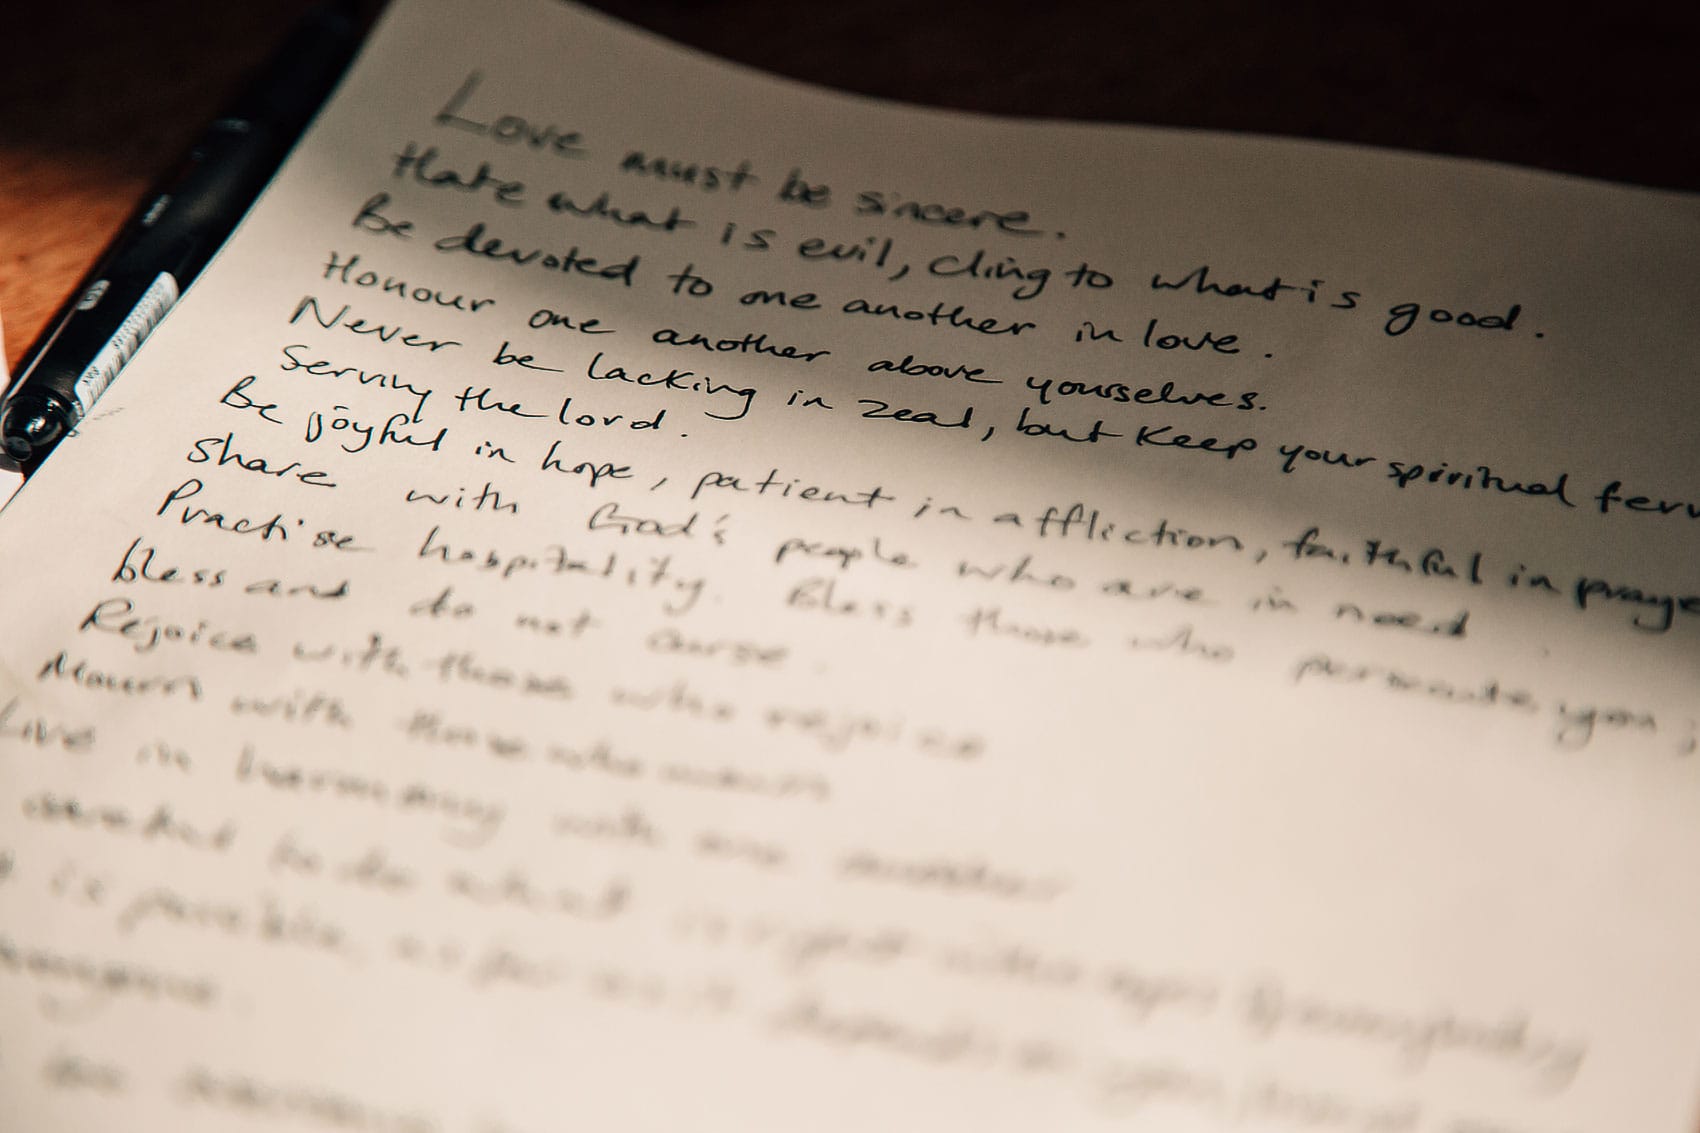 Love must be sincere.
Hate what is evil, cling to what is good.
Be devoted to one another in love.
Honour one another above yourselves.
Never be lacking in zeal, but keep your spiritual ferv
Serving the lord.
Be joyful in hope, patient in affliction, faithful in praye
Share with God's people who are in need.
Practise hospitality. Bless those who persecute you;
bless and do not curse.
Rejoice with those who rejoice
Mourn with those who mourn
Live in harmony with one another
careful to do what is right in the eyes of everybody
is possible, as far as it depends on you,